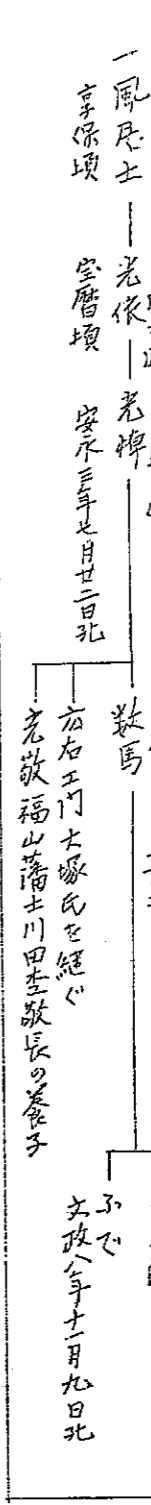 一風居士
享保頃
光依
宝暦頃
光惇
安永三年七月廿二日死
数馬
六右エ門大塚氏を継ぐ
光敬福山藩士川田杢敬長の養子
ふで
文政八年十一月九日死